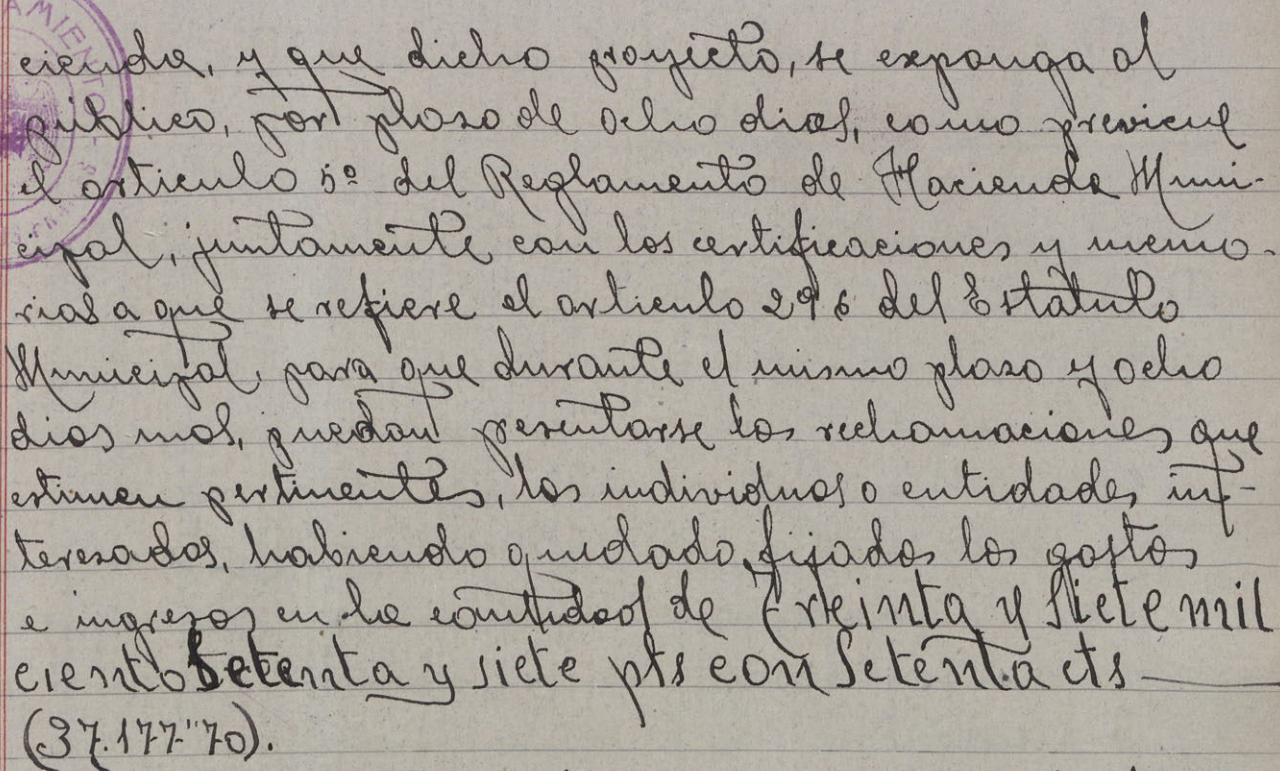 AMIENTO
cienda, y que dicho proyecto, se exponga al
público, por plazo de ocho dias, como previene
el articulo 5º del Reglamento de Hacienda Muni-
cipal, juntamente con las certificaciones y memo-
rias a que se refiere el articulo 296 del Estatuto
Municipal, para que durante el mismo plazo y ocho
dias mas, puedan presentarse las reclamaciones que
estimen pertinentes, los individuos o entidades int-
teresados, habiendo quedado fijados los gastos
e ingresos en la cantidad de Treinta y siete mil
ciento Setenta y siete pts con Setenta cts
(37.177"70).